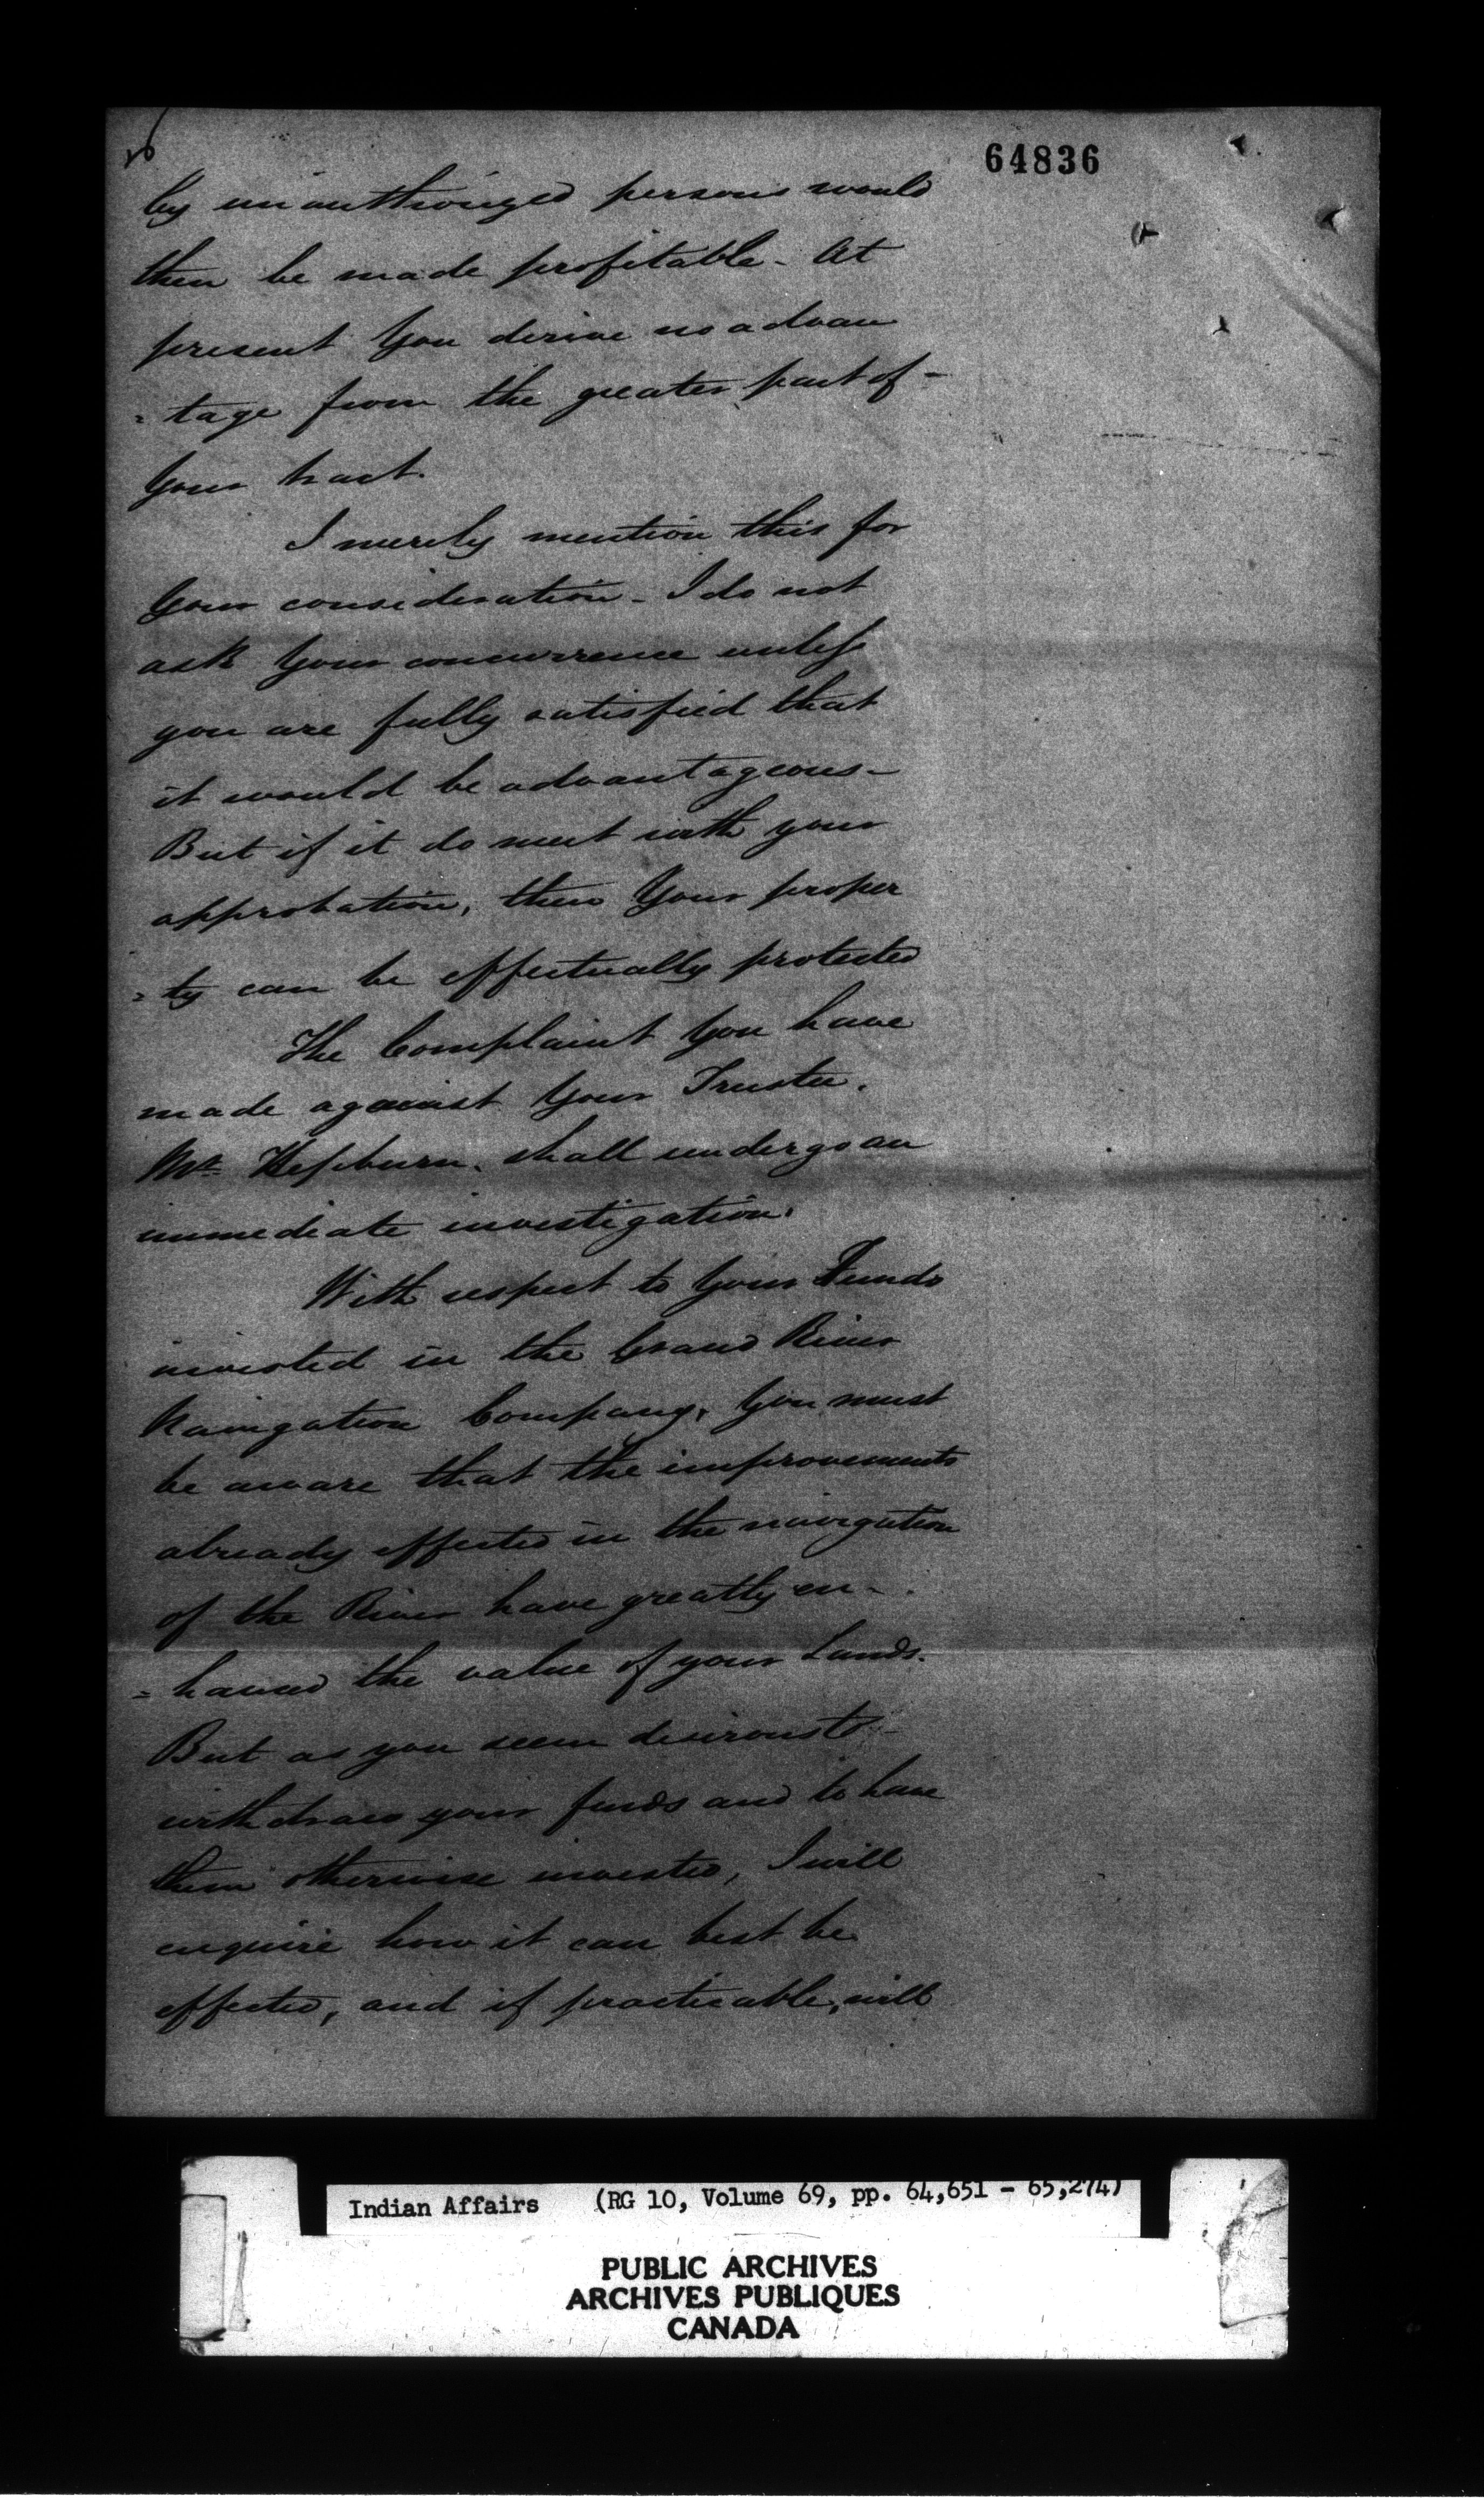 64836
by unauthorized persons would
then be made profitable - At
present You derive no advan
= tage from the greater part of -
Your tract.
I merely mention this for
Your consideration - I do not
ask Your concurrence unless
you are fully satisfied that
it would be advantageous -
But if it do meet with your
approbation, then Your proper
= ty can be effectually protected
The Complaint You have
made against Your Trustee.
Mr. Hepburn, shall undergo an
immediate investigation.
With respect to Your Funds
invested in the Grand River
Navigation Company, You must
be aware that the improvements
already effected in the navigation
of the River have greatly en -
= hanced the value of your Lands.
But as you seem desirous to -
withdraw your funds and to have
them otherwise invested, I will
enquire how it can best be
effected, and if practicable, will
Indian Affairs (RG 10, Volume 69, pp. 64,651 - 65,274)
PUBLIC ARCHIVES
ARCHIVES PUBLIQUES
CANADA